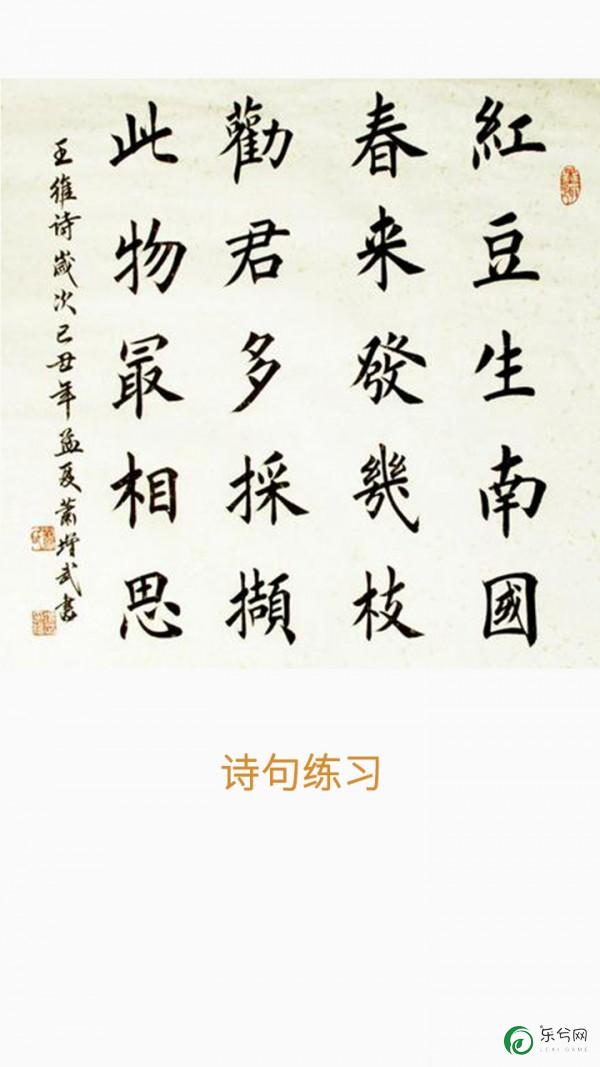 紅豆生南國
春来發幾枝
勸君多採擷
此物最相思
王維诗歲次己丑年孟夏萧增武書
诗句练习
乐兮网
LEXI GAME